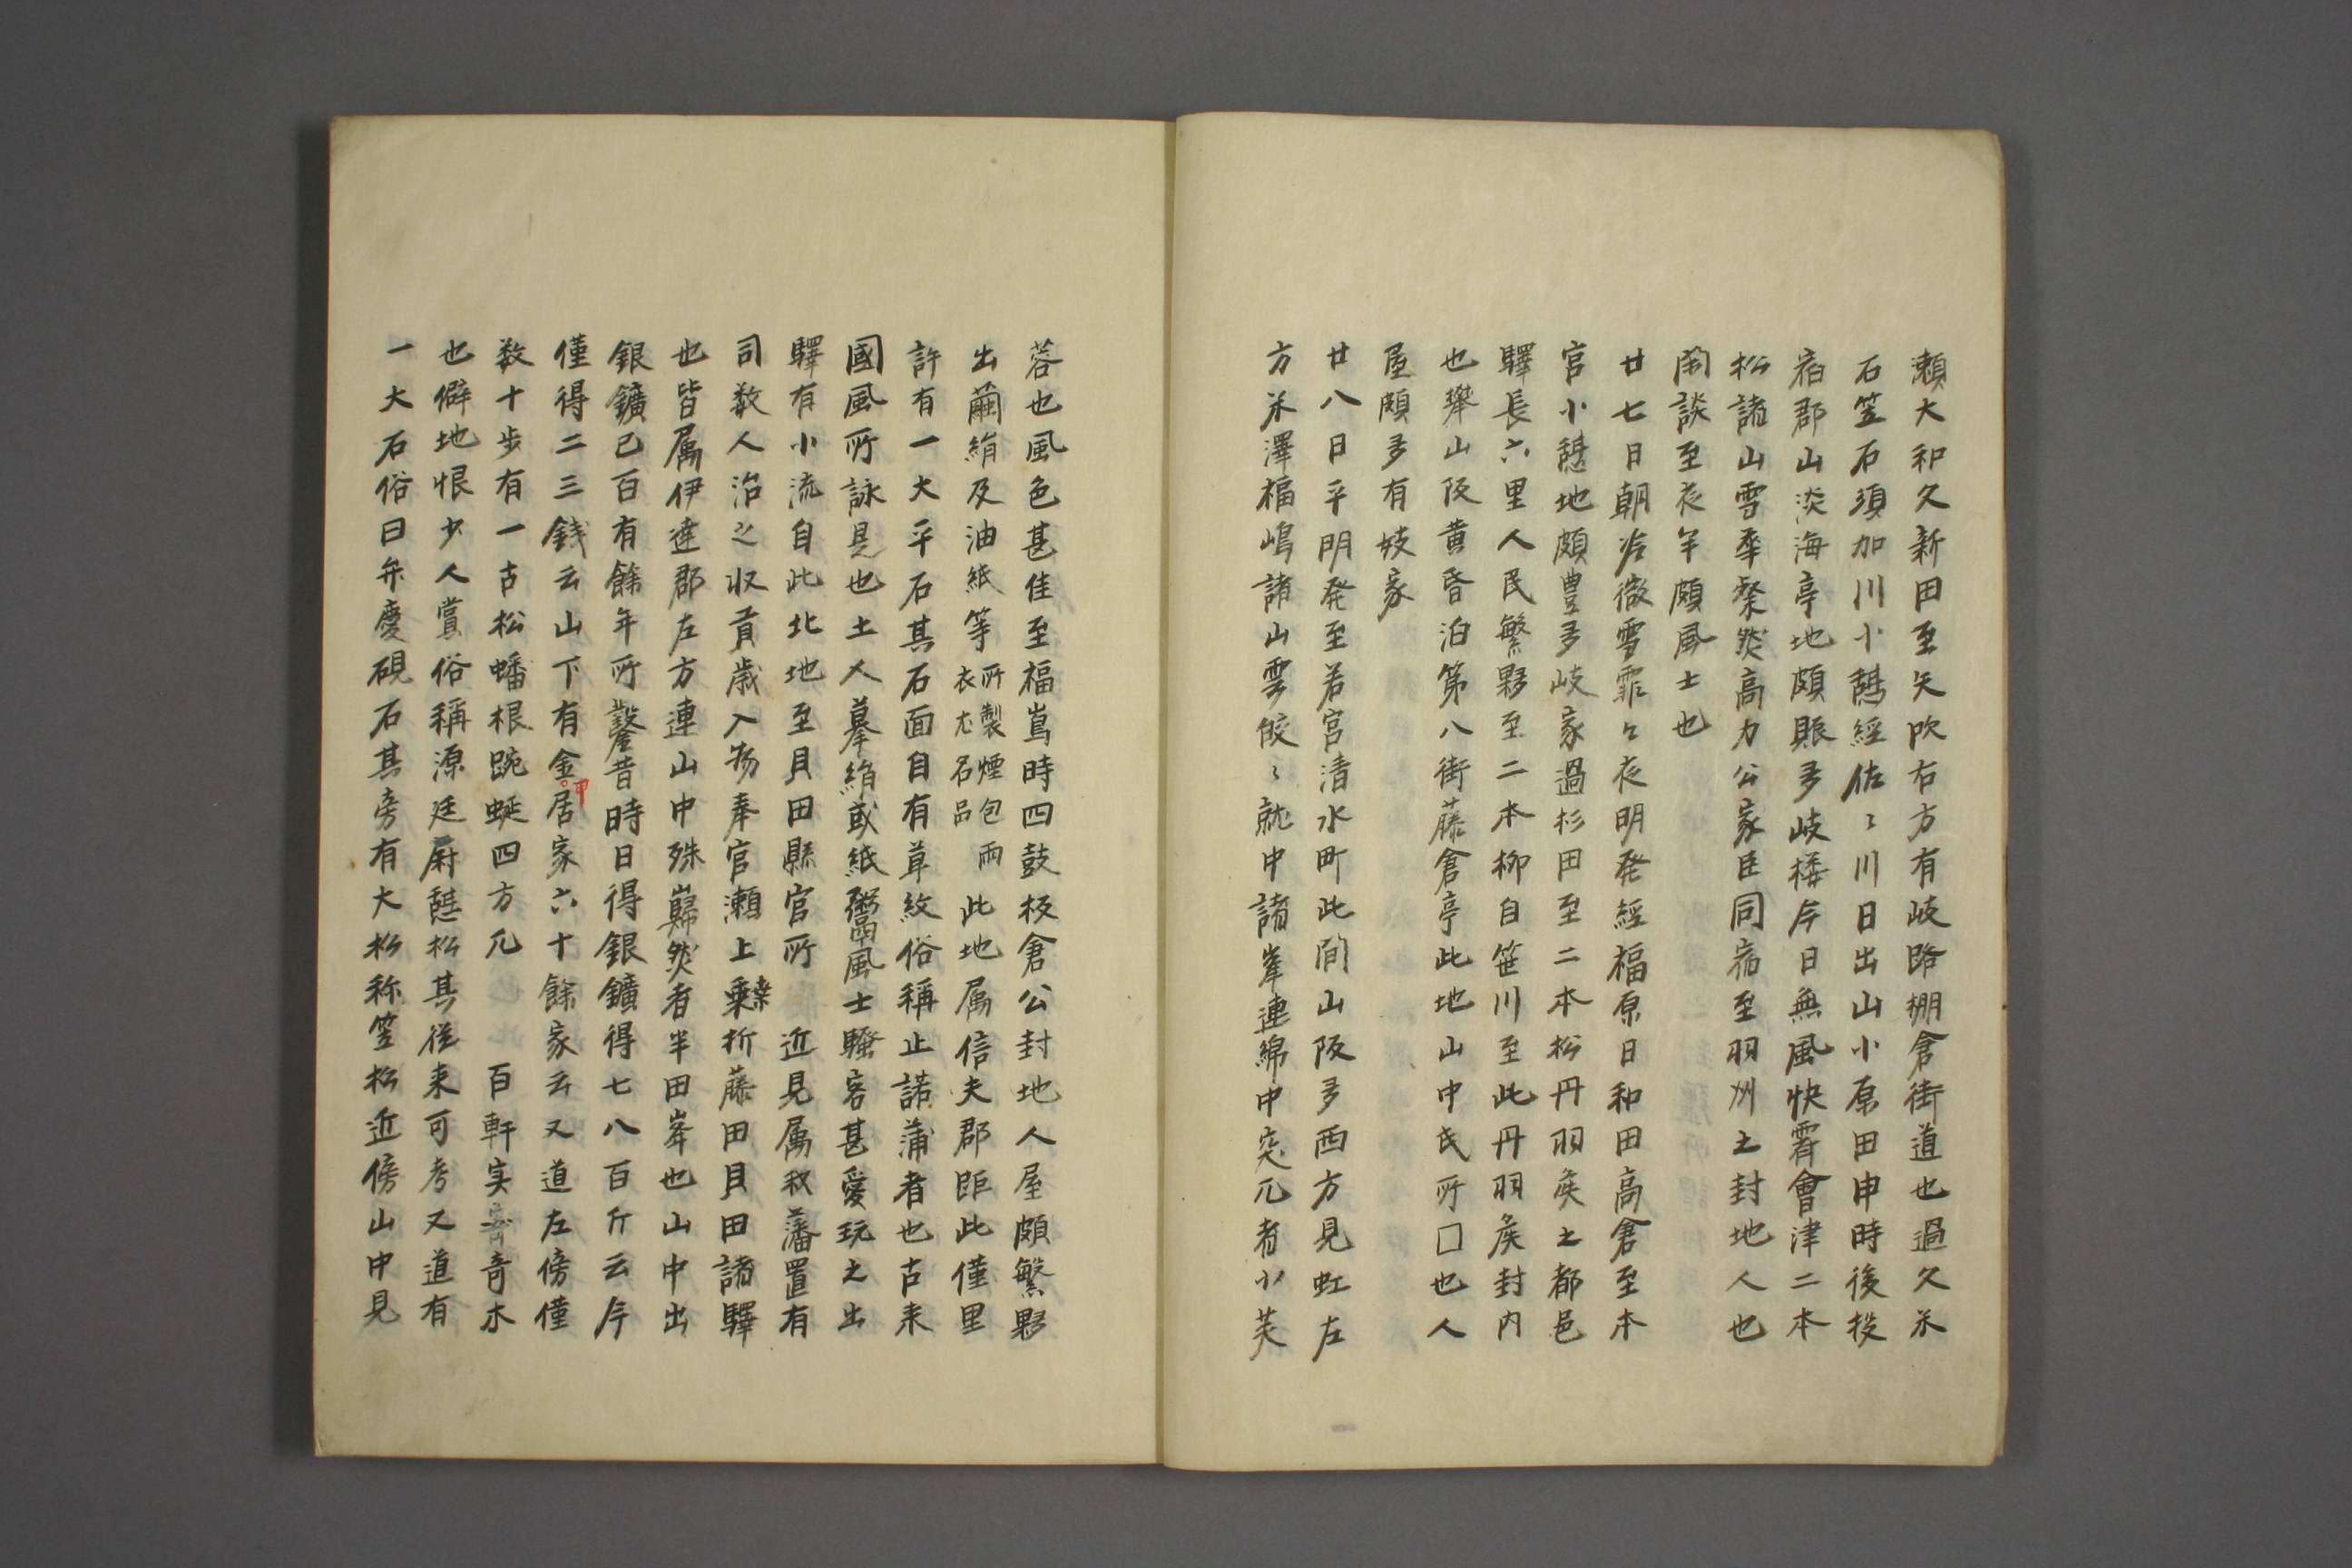 瀬大和久新田至矢吹右方有岐路棚倉街道也過久米
石笠石須加川小憩経佐〻川日出山小原田申時後投
宿郡山淡海亭地頗賑多岐楼今日無風快霽會津二本
松諸山雪率粲然高力公家臣同宿至羽州之封地人也
閑談至夜半頗風士也
廿七日朝冷微雪霏々夜明発経福原日和田高倉至本
宮小憩地頗豊多岐家過杉田至二本松丹羽侯之都邑
驛長六里人民繁夥至二本柳自笹川至此丹羽侯封内
也舉山阪黄昏泊第八街藤倉亭此地山中民所□也人
屋頗多有妓家
廿八日平明発至若宮清水町此間山阪多西方見虹左
方米澤福嶋諸山雲皎〻就中諸峯連綿中突兀者小芙
蓉也風色甚佳至福嶌時四鼓板倉公封地人屋頗繁夥
出繭絹及油紙等所製煙包雨衣尤名品此地属信夫郡距此僅里
許有一大平石其石面自有草紋俗稱止諾蒲者也古来
國風所詠是也土人摹絹或紙鬻風士騒客甚愛玩之出
驛有小流自此北地至貝田縣官所 近見属秋藩置有
司数人治之収貢歳入物奉官瀬上乗桒折藤田貝田諸驛
也皆属伊達郡左方連山中殊巋然者半田峯也山中出
銀鑛已百有餘年所鑿昔時日得銀鑛得七八百斤云今
僅得二三銭云山下有金居家六十餘家云又道左傍僅
数十歩有一古松蟠根踠蜒四方兀 百軒実寄奇木
也僻地恨少人賞俗稱源廷尉憩松其後来可考又道有
一大石俗曰弁慶硯石其旁有大松称笠松近傍山中見